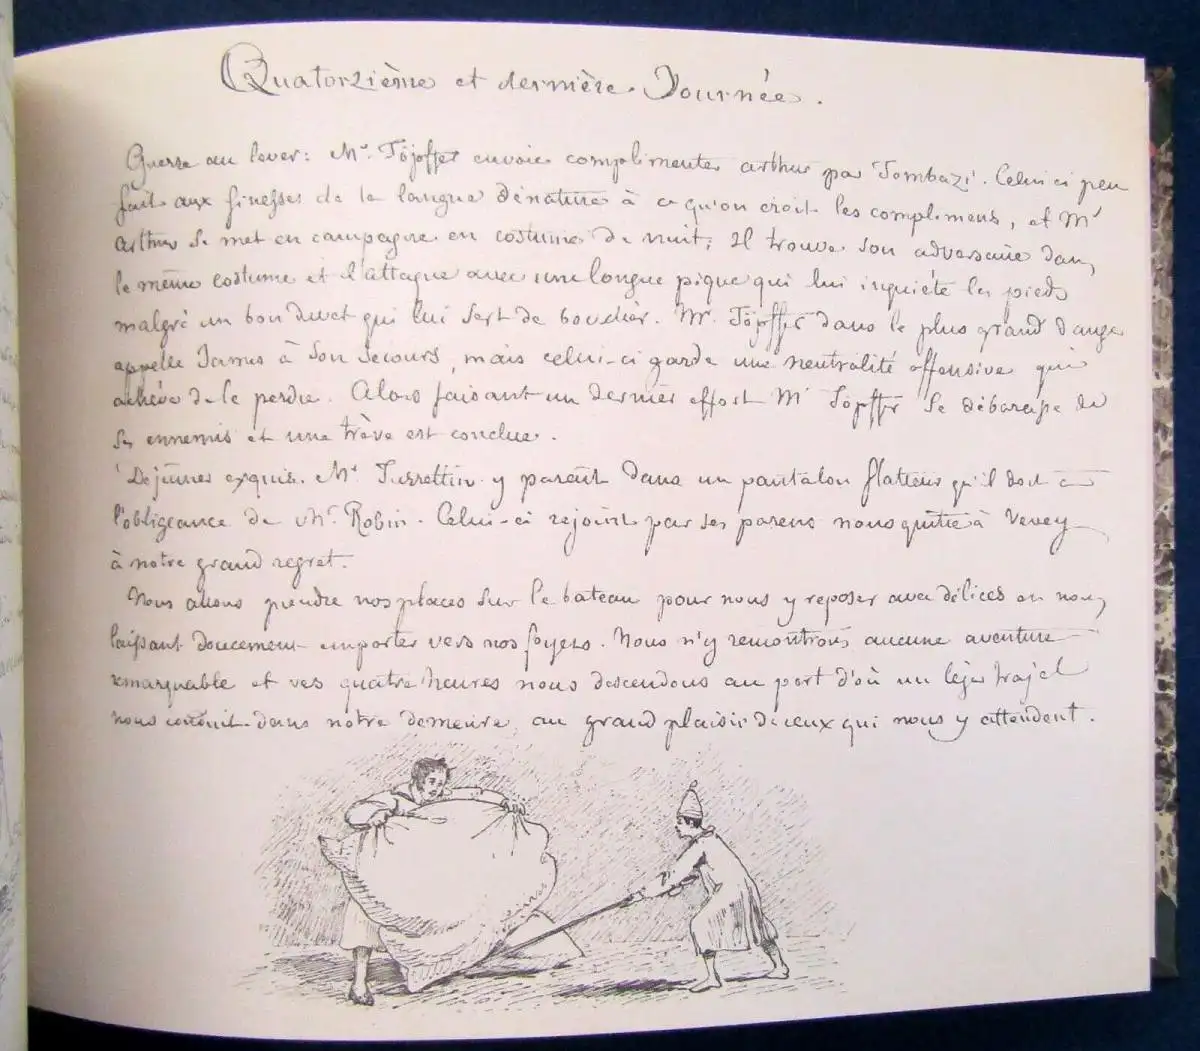 Quatorzième et dernière Journée.
Guerre au lever: Mr. Töpffer envoie complimenter arthur par Tombazi. Celui ci peu
fait aux finesses de la langue dénature à ce qu'on croit les complimens, et Mr
arthur se met en campagne en costume de nuit; Il trouve son adversaire dans
le même costume et l'attaque avec une longue pique qui lui inquiéte les pieds
malgré un bon duvet qui lui sert de bouclier. Mr. Töpffer dans le plus grand danger
appelle James à son secours, mais celui-ci garde une neutralité offensive qui
achève de le perdre. Alors faisant un dernier effort Mr Töpffer se débarasse de
ses ennemis et une trève est conclue.
Dejeuner exquis. Mr. Turrettin y parait dans un pantalon flatteur qu'il doit à
l'obligeance de Mr. Robin. Celui-ci rejoint par ses parens nous quitte à Vevey
à notre grand regret.
Nous allons prendre nos places sur le bateau pour nous y reposer avec délices en nous
laissant doucement emporter vers nos foyers. Nous n'y remontrons aucune aventure
remarquable et vers quatre heures nous descendons au port d'où un léger trajet
nous conduit dans notre demeure, au grand plaisir de ceux qui nous y attendent.